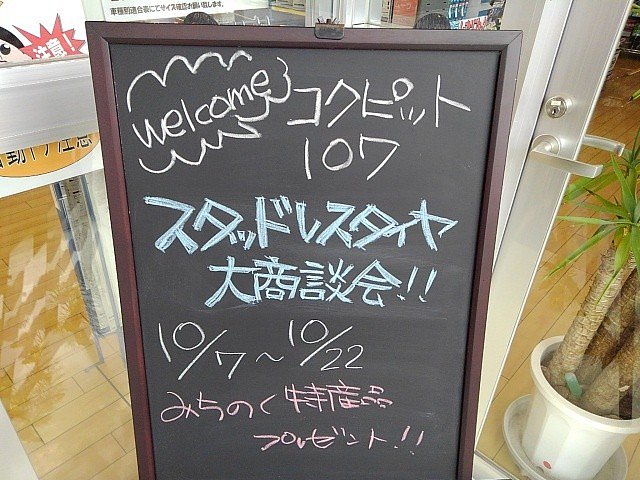 車種別適合表にてサイズ確認お願い致します
注意!
自動ドア注意
welcome
コクピット
107
スタッドレスタイヤ
大商談会!!
10/7～10/22
みちのく特産品
プレゼント!!